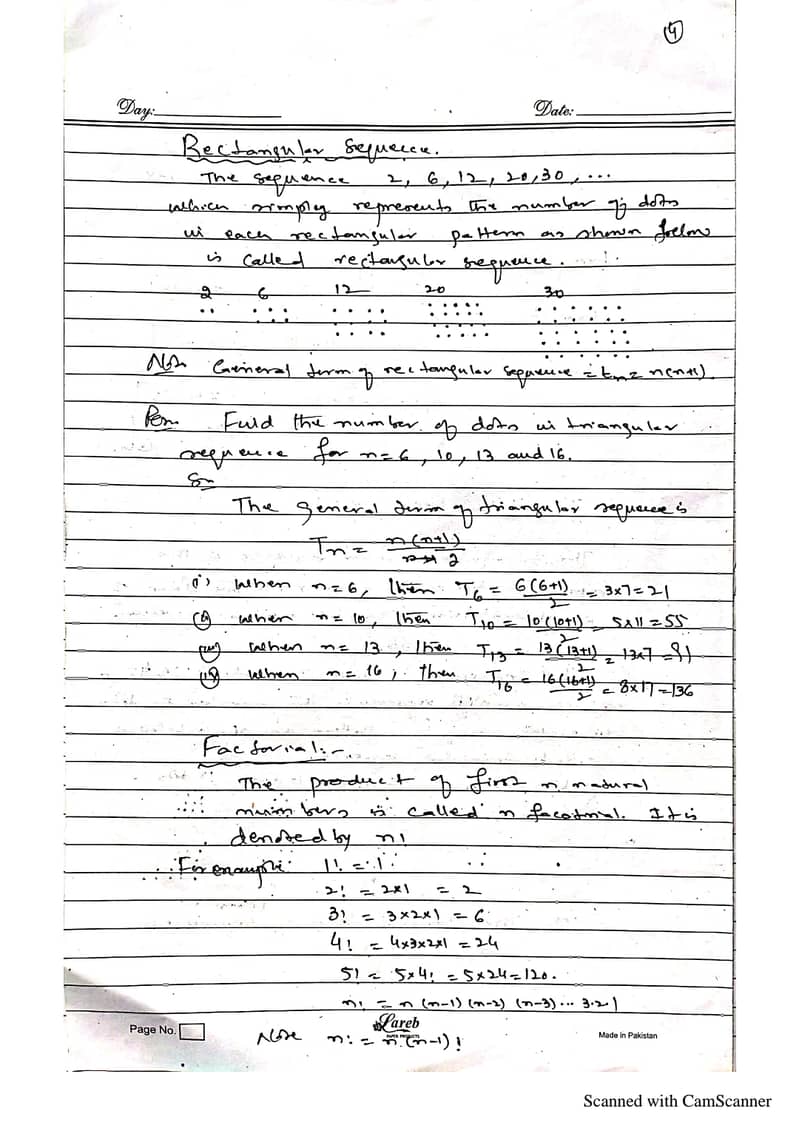 4
Day: Date:
Rectangular Sequence.
The sequence 2, 6, 12, 20, 30, ...
which simply represents the number of dots
in each rectangular pattern as shown below
is called rectangular sequence.
2 6 12 20 30
Note General term of rectangular sequence = tn = n(n+1).
Find the number of dots in triangular
sequence for n=6, 10, 13 and 16.
Sn
The general term of triangular sequence is
Tn = n(n+1)/2
(i) when n=6, then T6 = 6(6+1)/2 = 3x7=21
(ii) when n=10, then T10 = 10(10+1)/2 = 5x11=55
(iii) when n=13, then T13 = 13(13+1)/2 = 13x7=91
(iv) when n=16, then T16 = 16(16+1)/2 = 8x17=136
Factorial:-
The product of first n natural
numbers is called n facotrial. It is
denoted by n!
For example: 1! = 1
2! = 2x1 = 2
3! = 3x2x1 = 6
4! = 4x3x2x1 = 24
5! = 5x4! = 5x24=120.
n! = n (n-1) (n-2) (n-3)... 3.2.1
Page No. Lareb PAPER PRODUCTS Made in Pakistan
Note n! = n.(n-1)!
Scanned with CamScanner